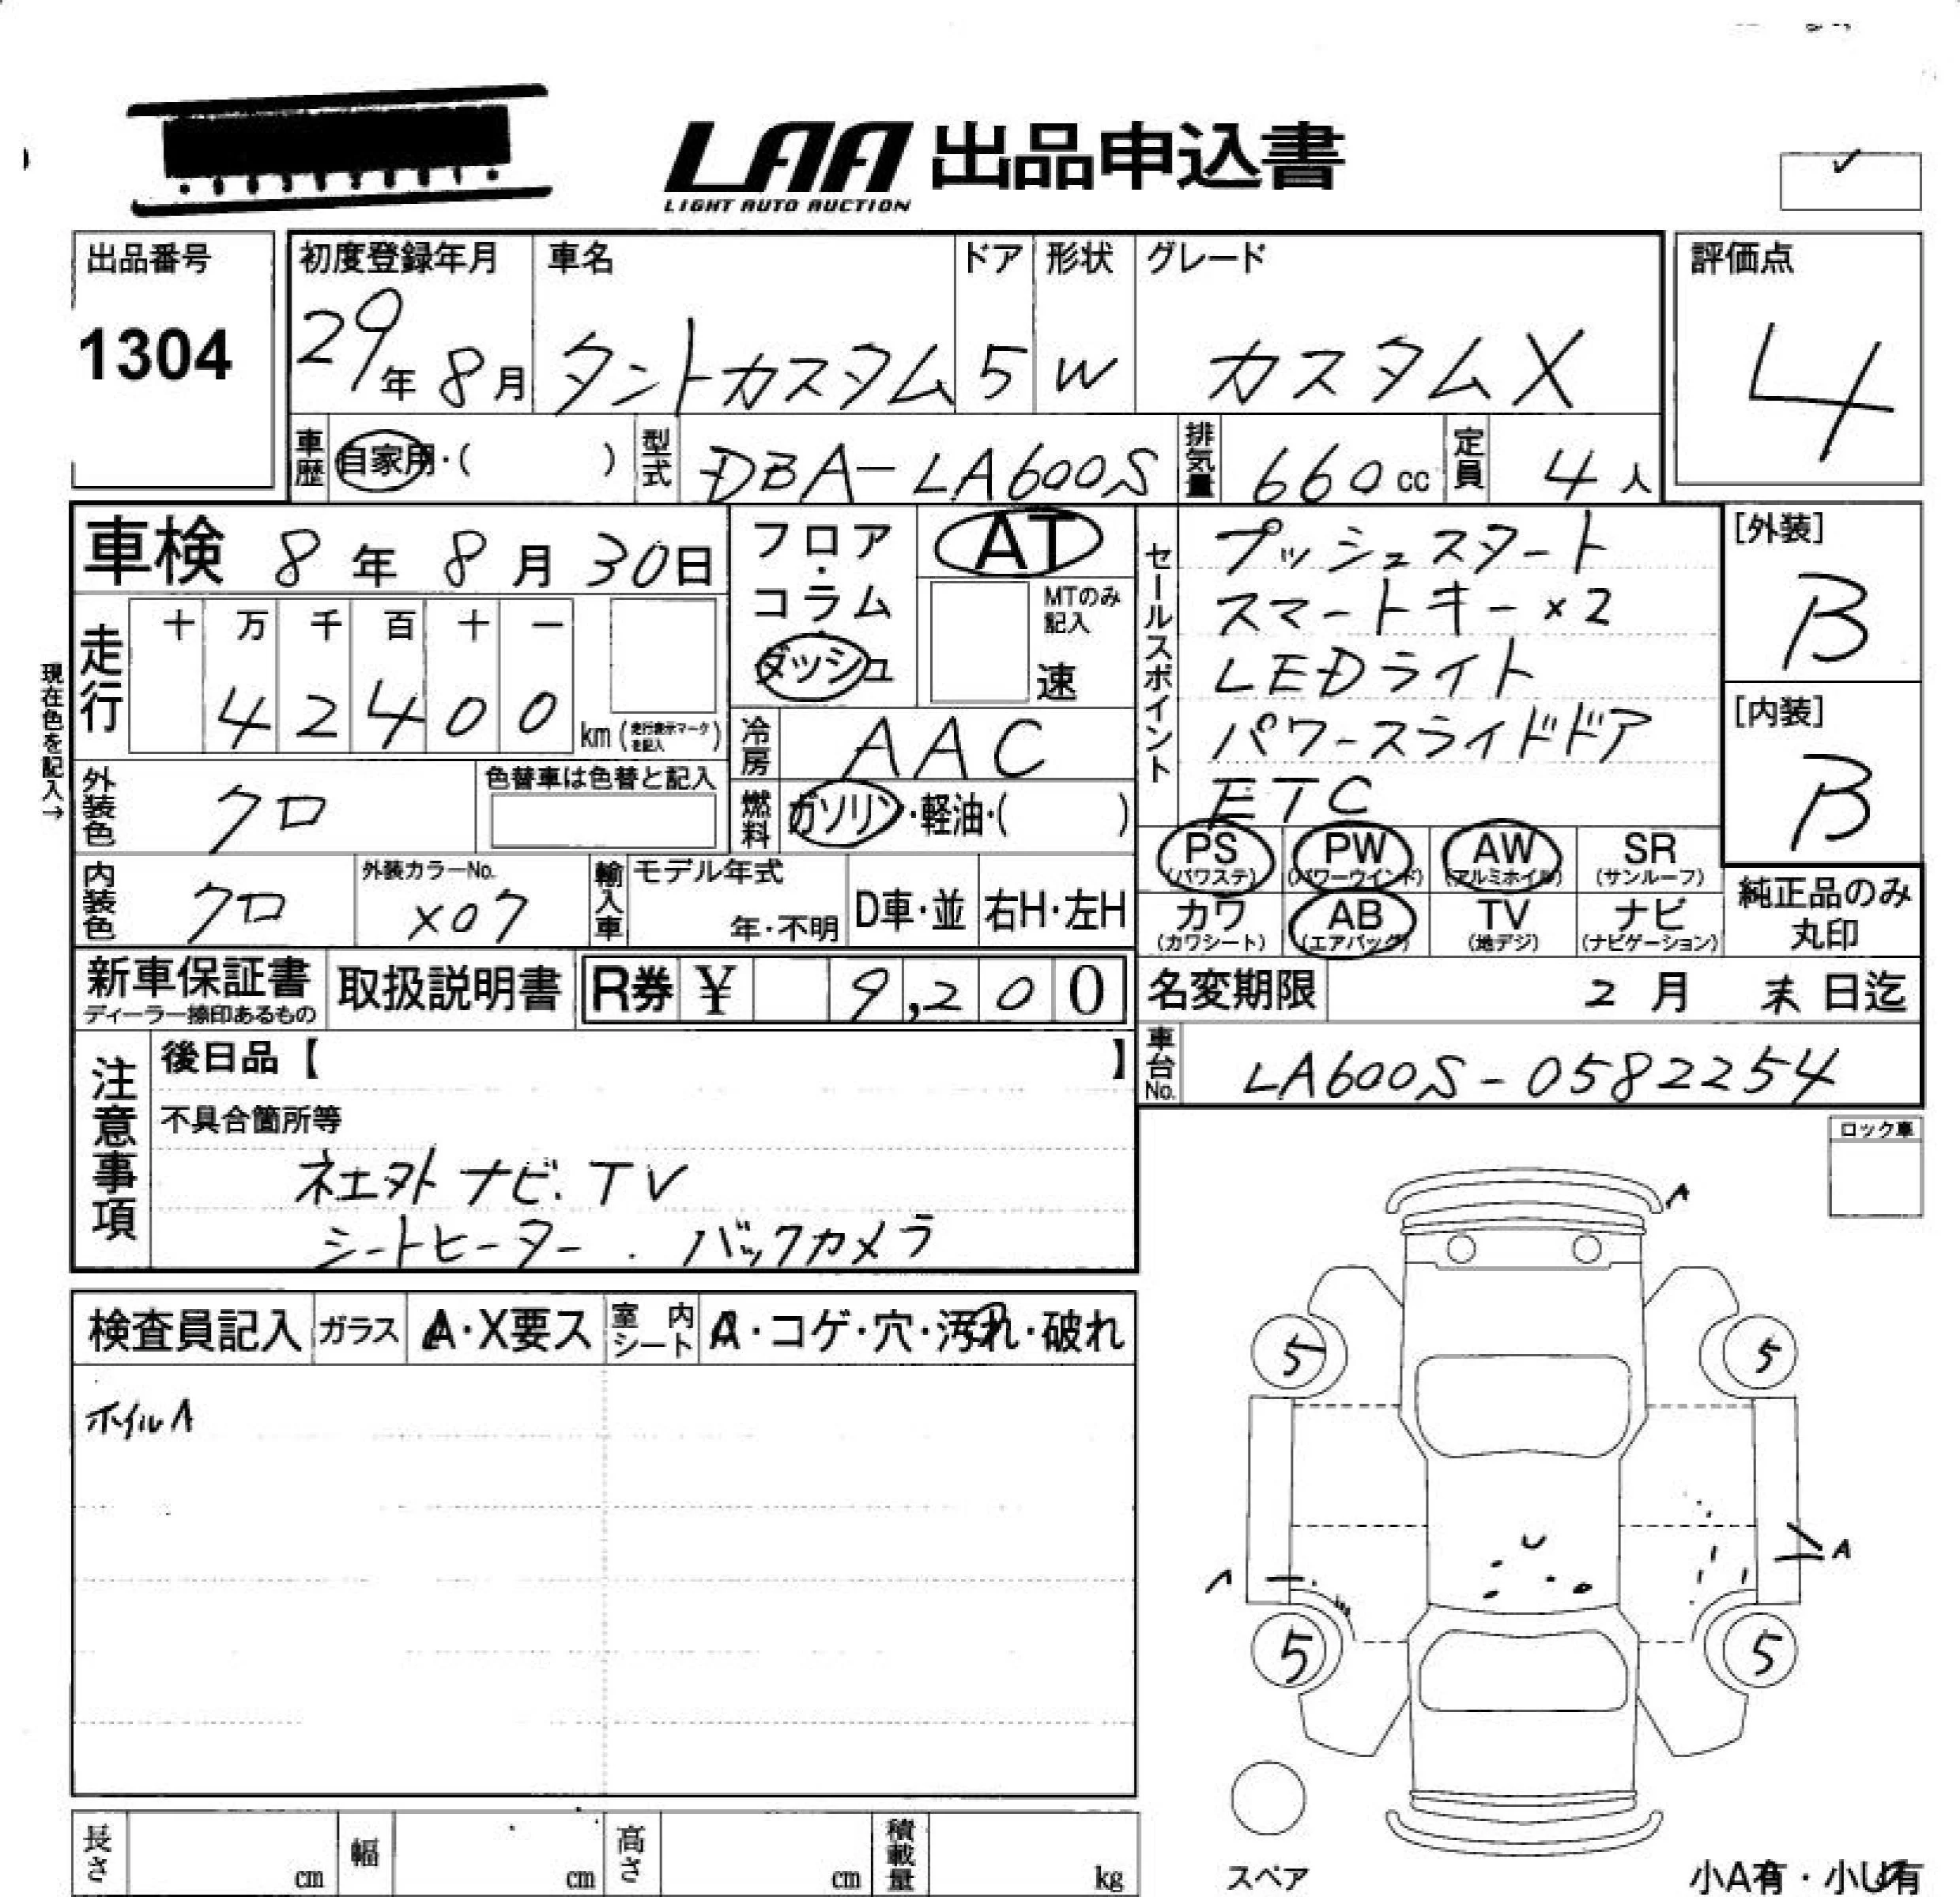 LAA 出品申込書
LIGHT AUTO AUCTION
出品番号
1304
初度登録年月
29年 8月
車名
タントカスタム
ドア
5
形状
W
グレード
カスタムX
評価点
4
車歴 自家用・( )
型式 DBA-LA600S
排気量 660cc
定員 4人
車検 8年 8月 30日
フロア・コラム・ダッシュ
AT
MTのみ記入
速
現在色を記入→
走行
十 万 千 百 十 一
4 2 4 0 0 km (走行表示マークを記入)
冷房 AAC
燃料 ガソリン・軽油・( )
外装色 クロ
色替車は色替と記入
内装色 クロ
外装カラーNo.
X07
輸入車
モデル年式
年・不明
D車・並
右H・左H
セールスポイント
プッシュスタート
スマートキー×2
LEDライト
パワースライドドア
ETC
[外装]
B
[内装]
B
PS (パワステ)
PW (パワーウインド)
AW (アルミホイル)
SR (サンルーフ)
カワ (カワシート)
AB (エアバッグ)
TV (地デジ)
ナビ (ナビゲーション)
純正品のみ丸印
新車保証書
ディーラー捺印あるもの
取扱説明書
R券 ¥ 9,200
名変期限 2月 末日迄
車台No. LA600S-0582254
注意事項
後日品【 】
不具合箇所等
社外ナビ.TV
シートヒーター . バックカメラ
ロック車
検査員記入
ガラス
A・X要ス
室内シート
A・コゲ・穴・汚れ・破れ
ホイルA
A
5 5
U
A
A
5 5
スペア
小A有・小U有
長さ cm
幅 cm
高さ cm
積載量 kg